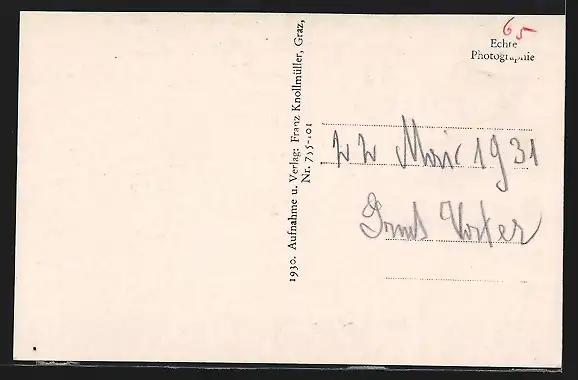 65
Echte
Photographie
1930. Aufnahme u. Verlag: Franz Knollmüller, Graz,
Nr. 735-101
22 Mai 1931